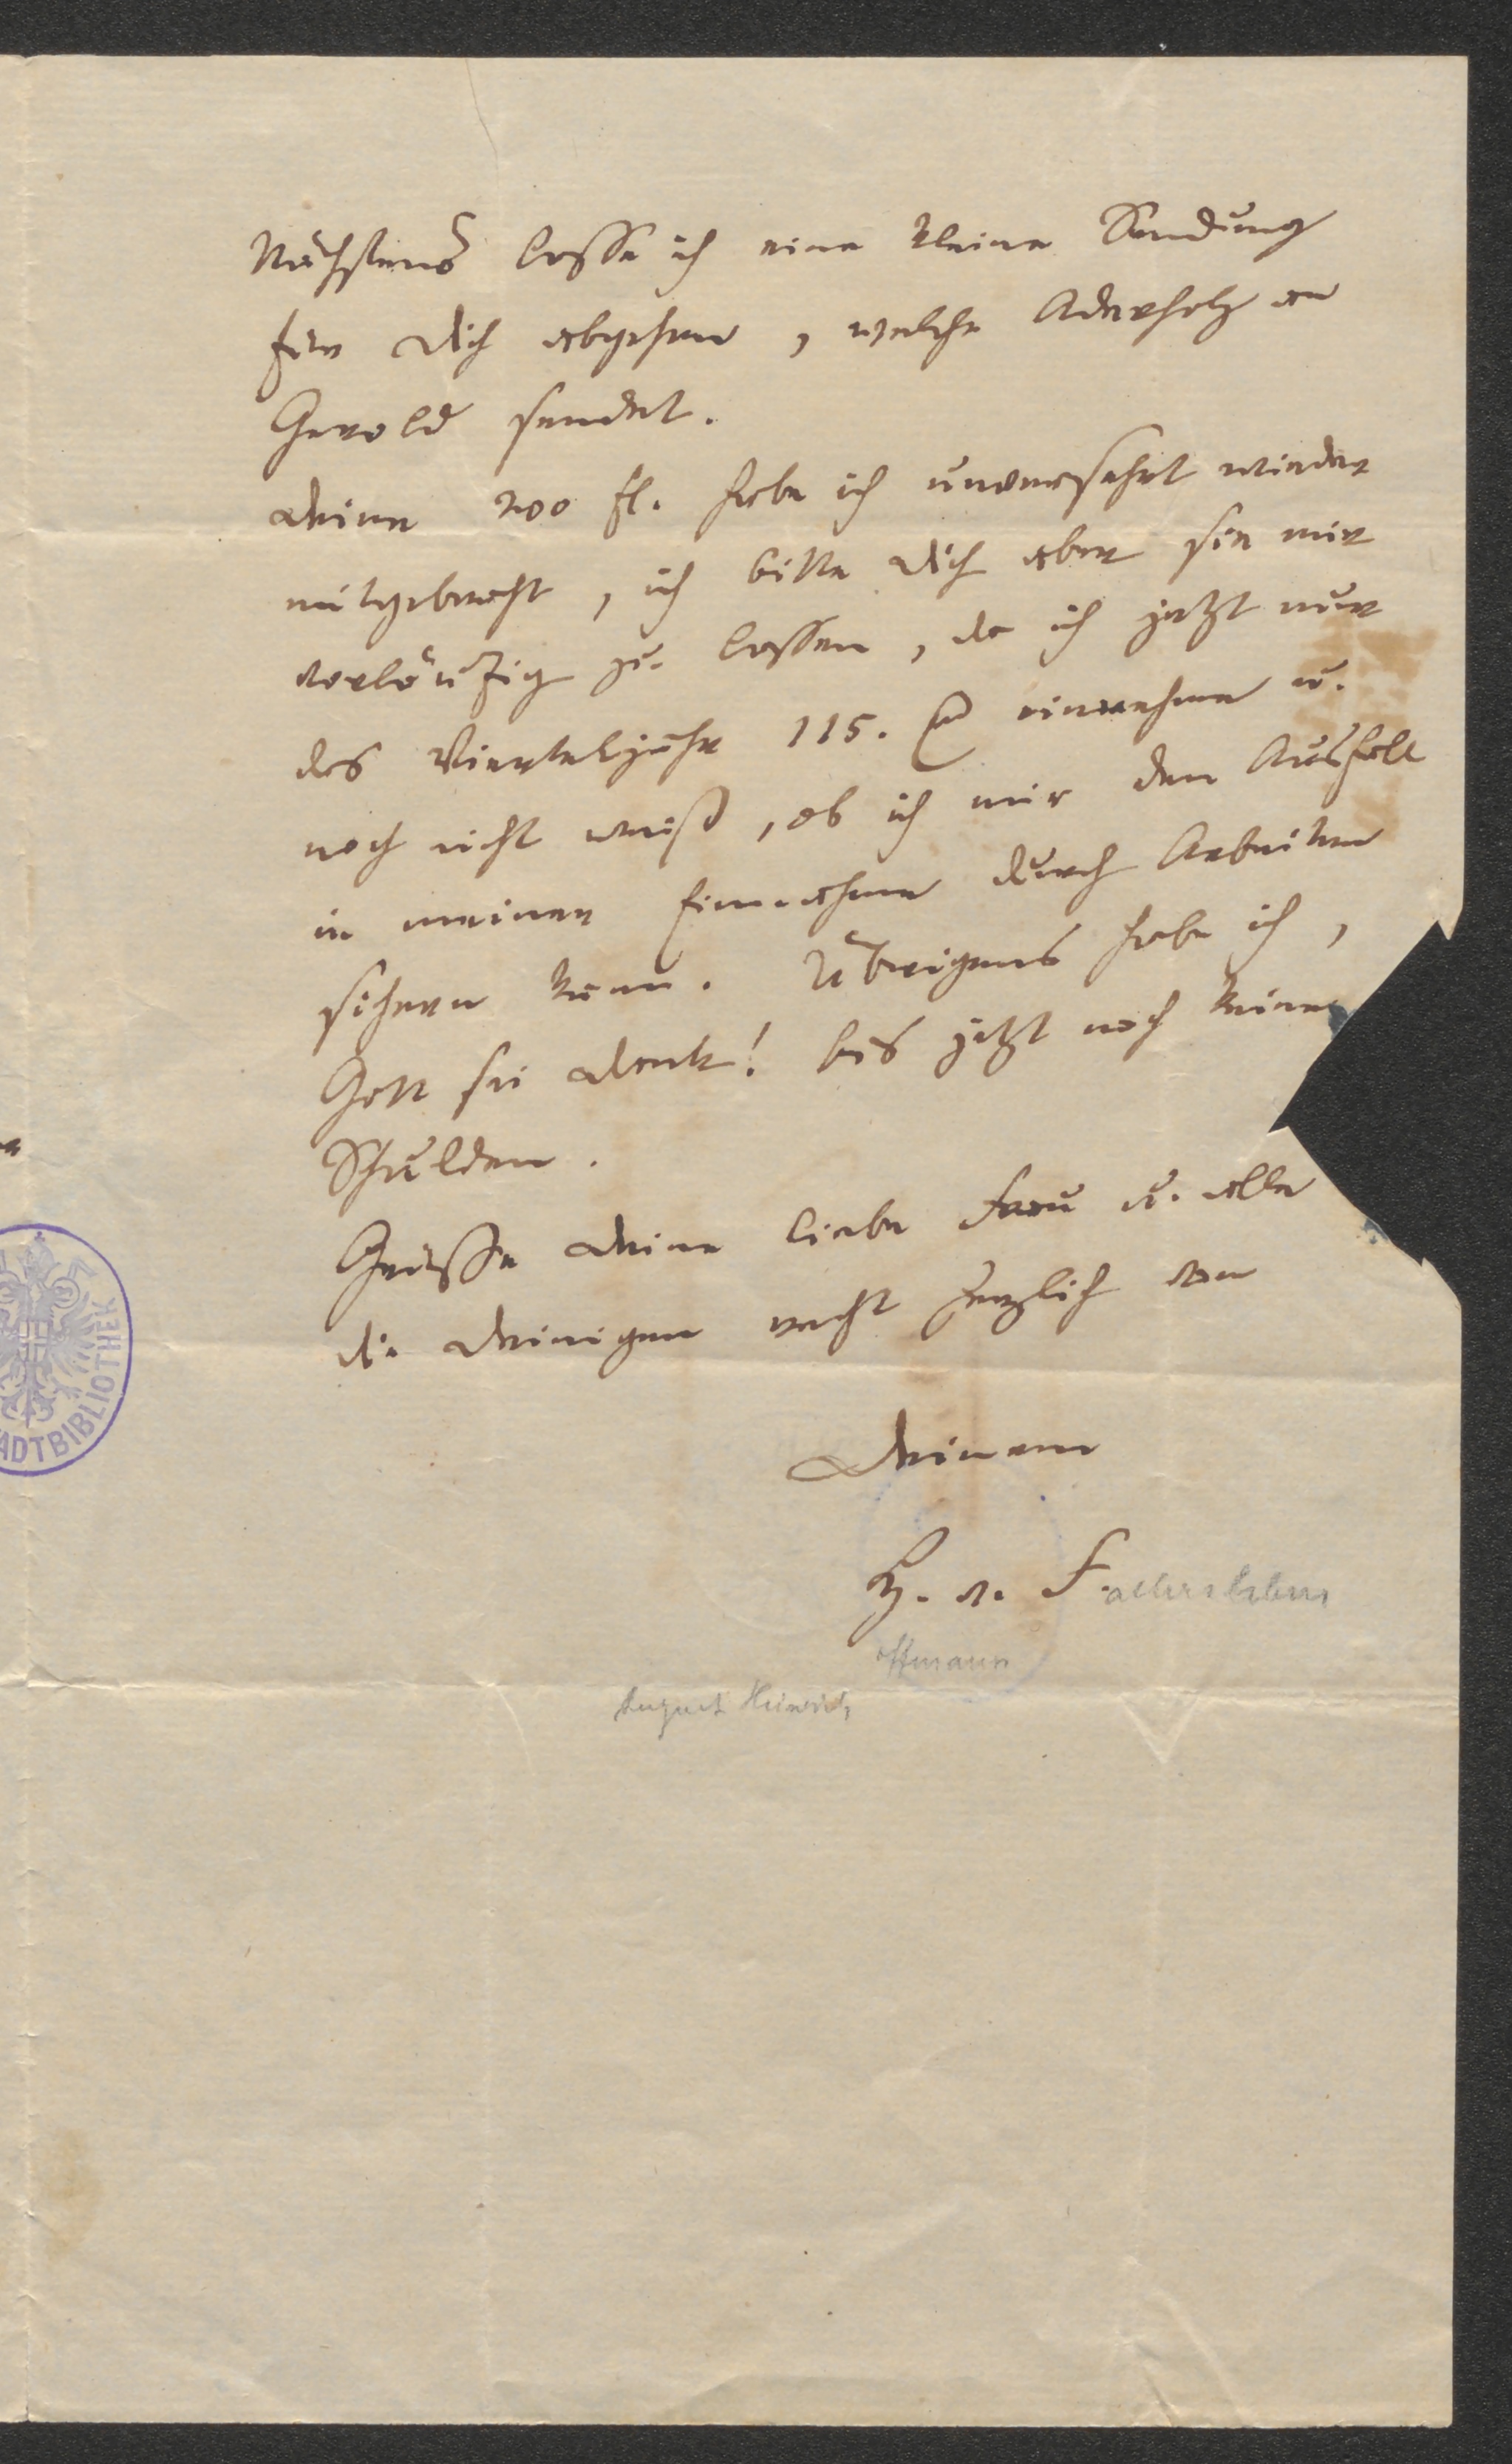 Nächstens lasse ich eine kleine Sendung
für Dich abgehen, welche Aderholz an
Gerold sendet.
Deine 200 fl. habe ich unversehrt wieder
mitgebracht, ich bitte Dich aber sie mir
vorläufig zu lassen, da ich jetzt nur
das Vierteljahr 115. einnehme u.
noch nicht weiß, ob ich mir den Ausfall
in meiner Einnahme durch Arbeiten
sichern kann. Übrigens habe ich,
Gott sei Dank! bis jetzt noch keine
Schulden.
Grüsse Deine liebe Frau u. alle
die Deinigen recht herzlich von
Deinem
H. v. Fallersleben
offmann
August Heinrich
ADTBIBLIOTHEK